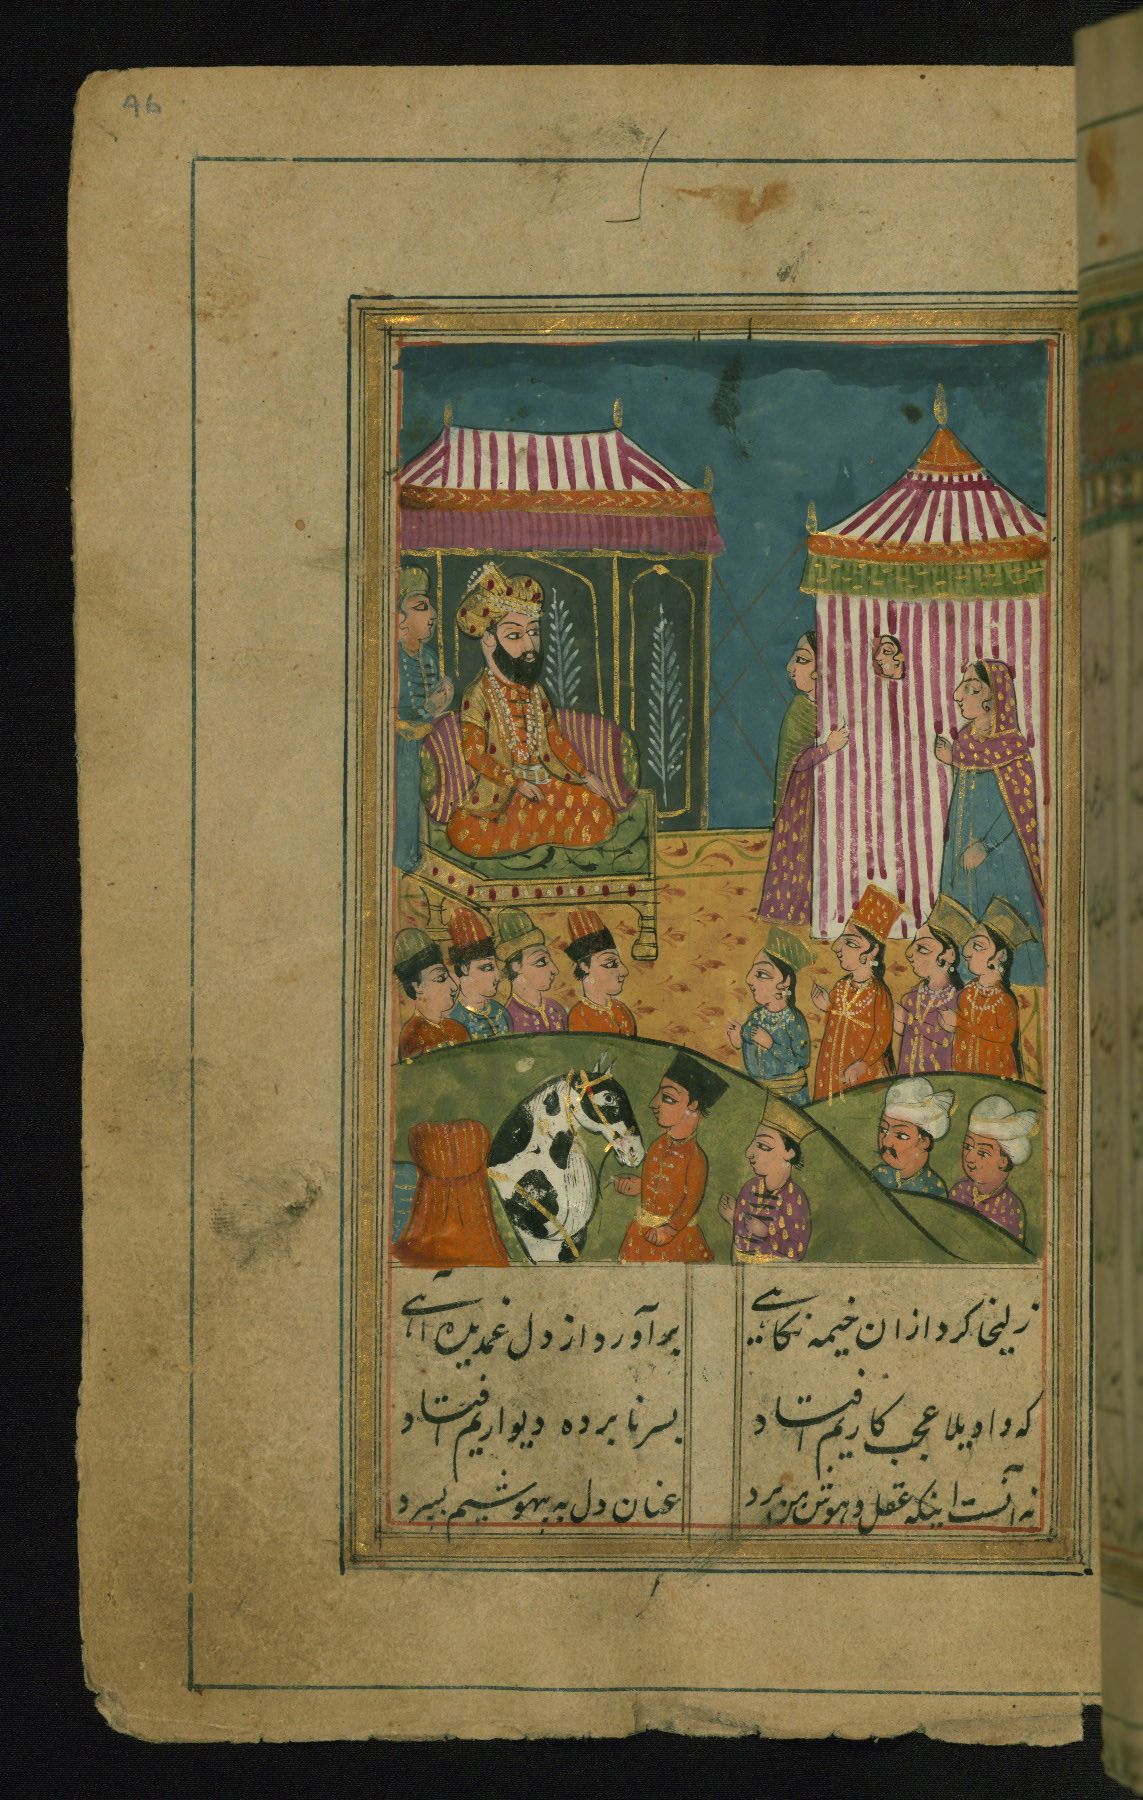 46
زلیخا کرد ازان خیمه نکاهی
برآورد از دل غمدیده آهی
که واویلا عجب کاریم افتاد
بسر نابرده دیواریم افتاد
نه آنست اینکه عقل و هوش من برد
عنان دل به بیهوشیم بسپرد